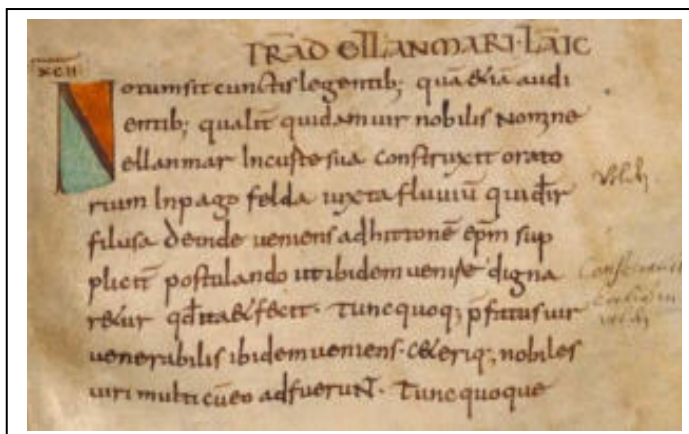 TRAD ELLANMARI·LAIC
XCII
Notum sit cunctis legentib; quā &iā audi
entib; qualit̄ quidam uir nobilis Nomine
ellanmar In custe sua construxit orato
rium In pago felda iuxta fluuiū qui dr̄
filusa deinde ueniens ad hittonē ep̄m sup
plicit̄ postulando ut ibidem uenire digna
r&ur qd̄ ita & fecit· Tunc quoq; p̄fatus uir
uenerabilis ibidem ueniens· c&eriq; nobiles
uiri multi cū eo adfuerunt· Tunc quoque